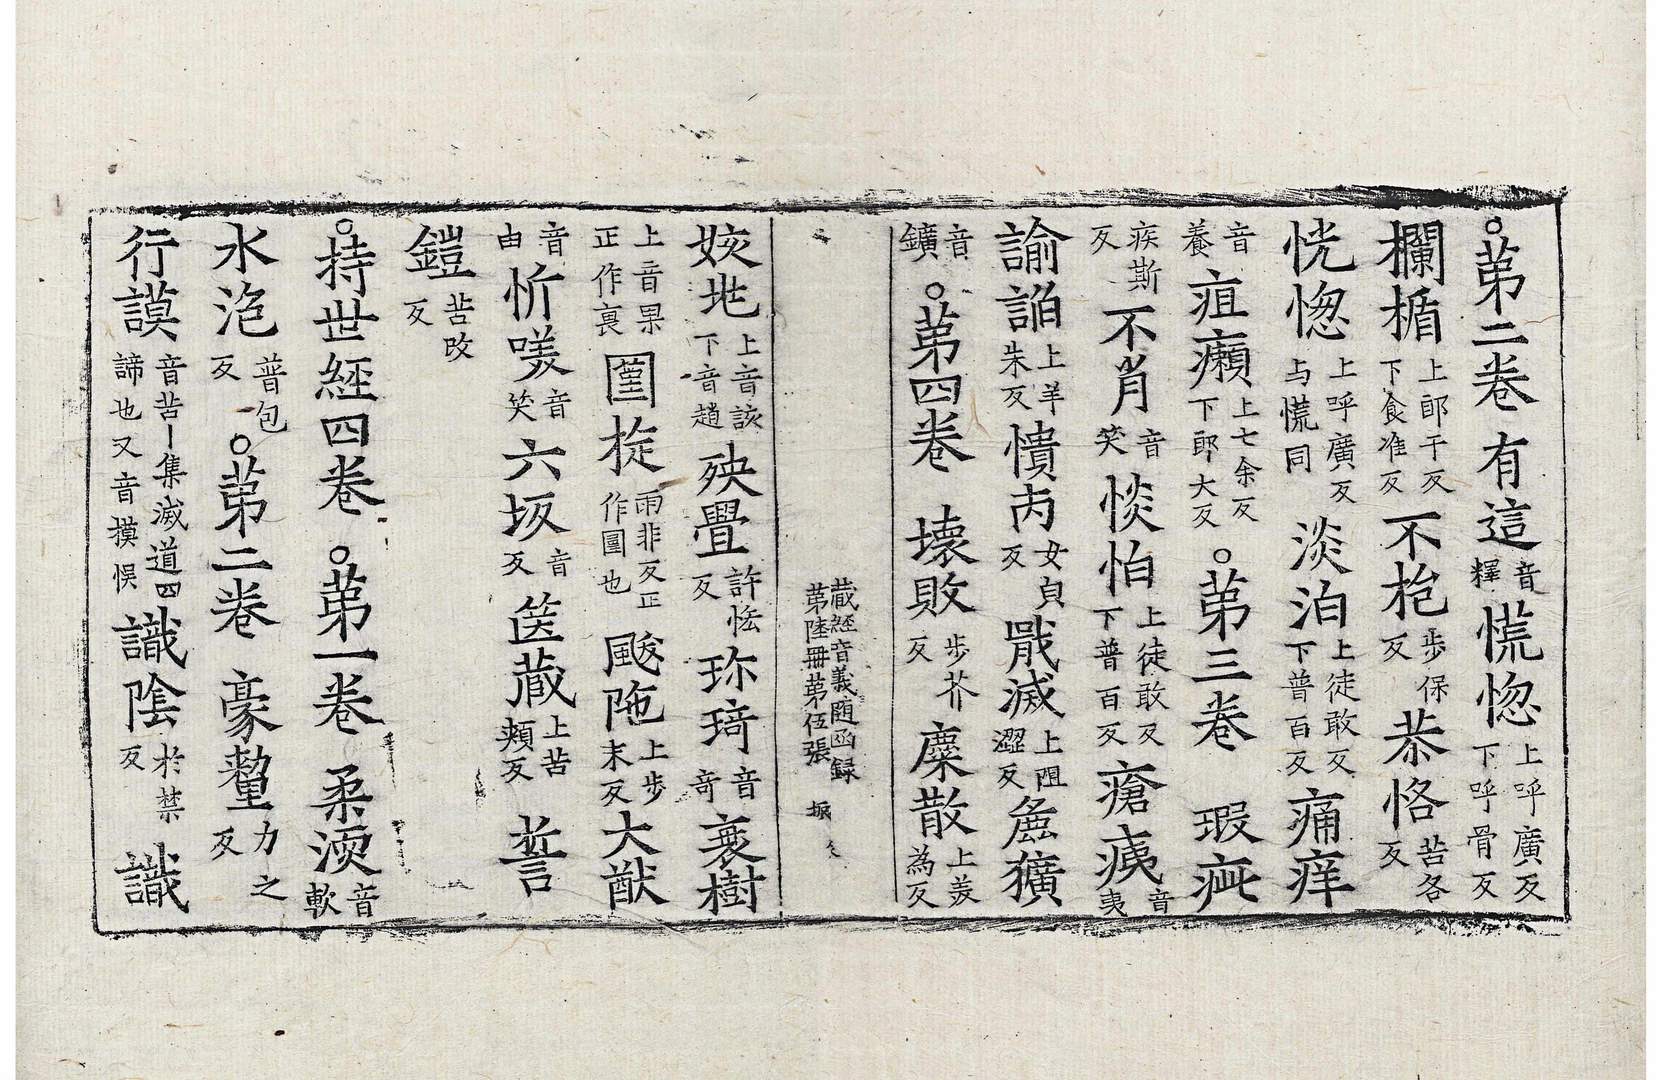 ○第二卷 有這音釋慌惚上呼廣反下呼骨反
欄楯上郎干反下食准反不抱步保反恭恪苦各反
恍惚上呼廣反与慌同淡泊上徒敢反下普百反痛痒
音養疽癩上七余反下郎大反○第三卷 瑕疵
疾斯反不肖音笑惔怕上徒敢反下普百反瘡痍音夷
諭諂上羊朱反憒丙女貞反戢滅上阻澀反麁獷
音鑛○第四卷 壞敗步芥反糜散上美為反
藏經音義随函録第陸冊第伍張 振
姟垗上音該下音趙殃舋許恡反珎琦音奇裹樹
上音果正作裹圊雨非反正作圍也颰陁上步末反大猷
音由忻𠴕音笑六坂音反篋蔵上苦頰反誓
鎧苦改反
○持世經四卷 ○第一卷 柔渜音軟
水泡普包反○第二卷 豪氂力之反
行謨音苦丨集滅道四諦也又音摸悮識陰於禁反識